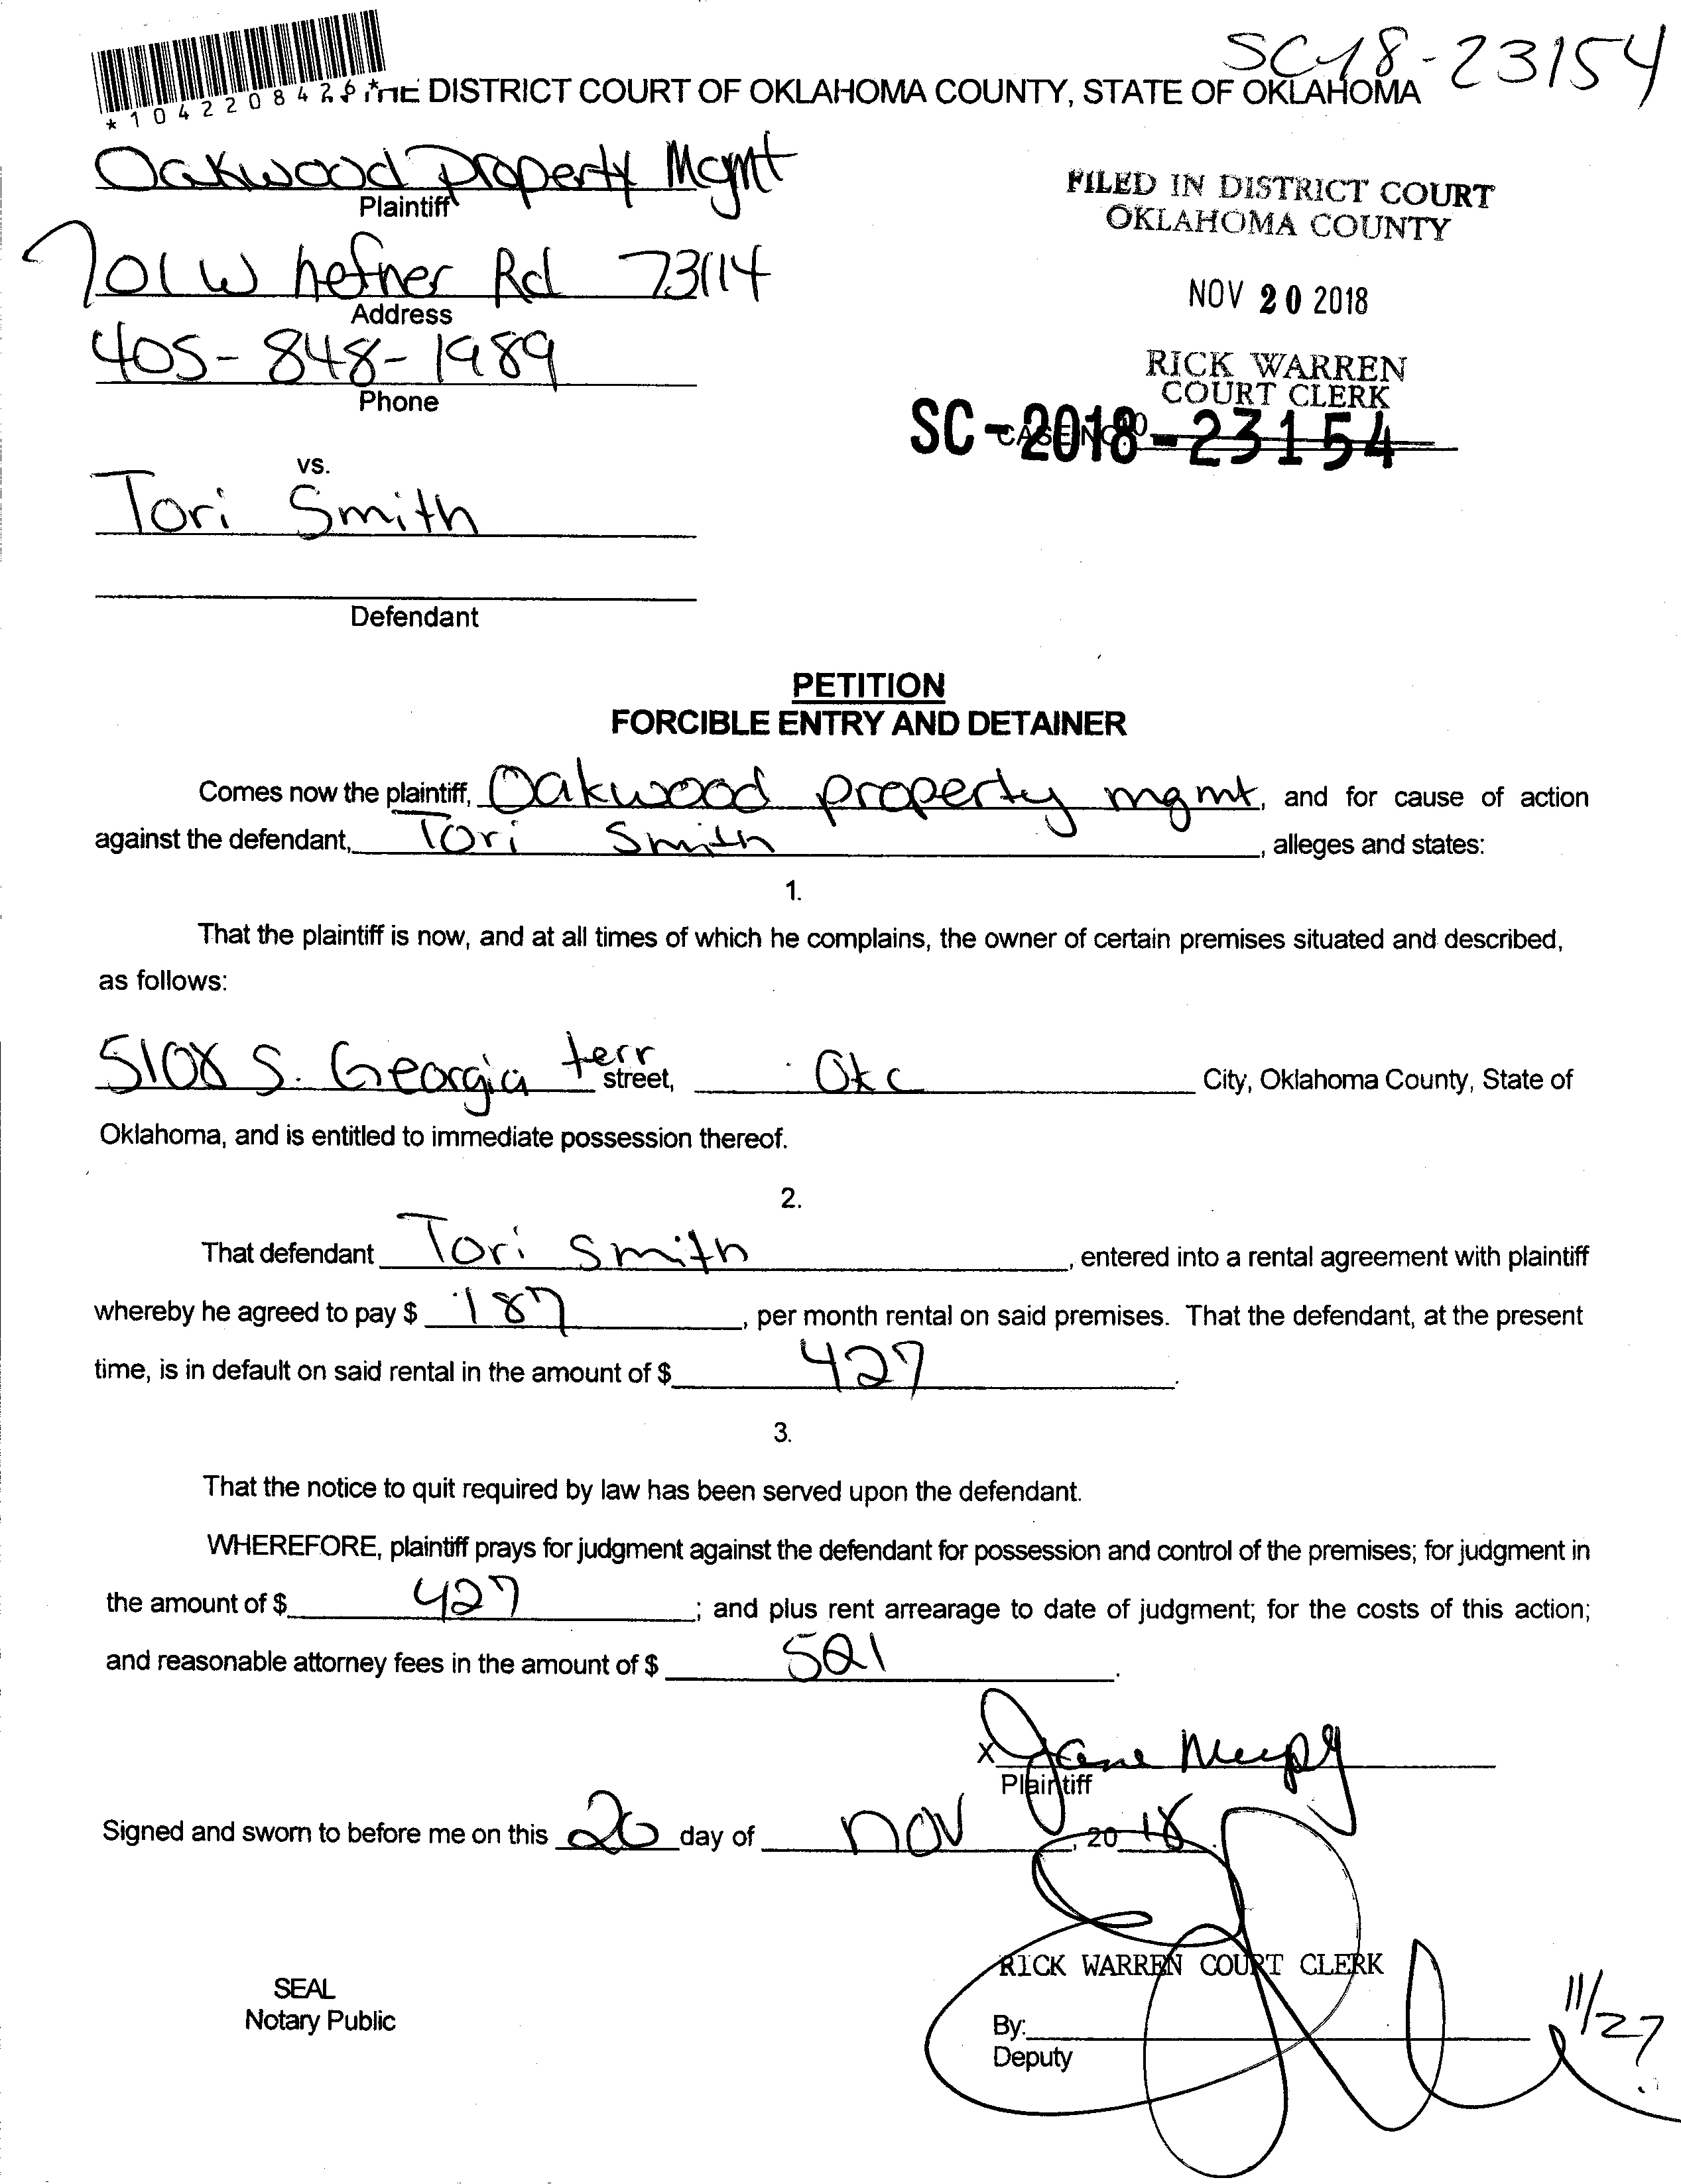 SC18-23154
*1042208426*
THE DISTRICT COURT OF OKLAHOMA COUNTY, STATE OF OKLAHOMA
Oakwood Property Mgmt
Plaintiff
701 W hefner Rd 73114
Address
405-848-1989
Phone
FILED IN DISTRICT COURT
OKLAHOMA COUNTY
NOV 20 2018
RICK WARREN
COURT CLERK
CASE NO.
SC-2018-23154
vs.
Tori Smith
Defendant
PETITION
FORCIBLE ENTRY AND DETAINER
Comes now the plaintiff, Oakwood property mgmt, and for cause of action
against the defendant, Tori Smith, alleges and states:
1.
That the plaintiff is now, and at all times of which he complains, the owner of certain premises situated and described,
as follows:
5108 S. Georgia terr street, Okc City, Oklahoma County, State of
Oklahoma, and is entitled to immediate possession thereof.
2.
That defendant Tori Smith, entered into a rental agreement with plaintiff
whereby he agreed to pay $ 187, per month rental on said premises. That the defendant, at the present
time, is in default on said rental in the amount of $ 427.
3.
That the notice to quit required by law has been served upon the defendant.
WHEREFORE, plaintiff prays for judgment against the defendant for possession and control of the premises; for judgment in
the amount of $ 427; and plus rent arrearage to date of judgment; for the costs of this action;
and reasonable attorney fees in the amount of $ 521.
X Jane
Plaintiff
Signed and sworn to before me on this 20 day of nov, 2018.
RICK WARREN COURT CLERK
SEAL
Notary Public
By:
Deputy
11/27